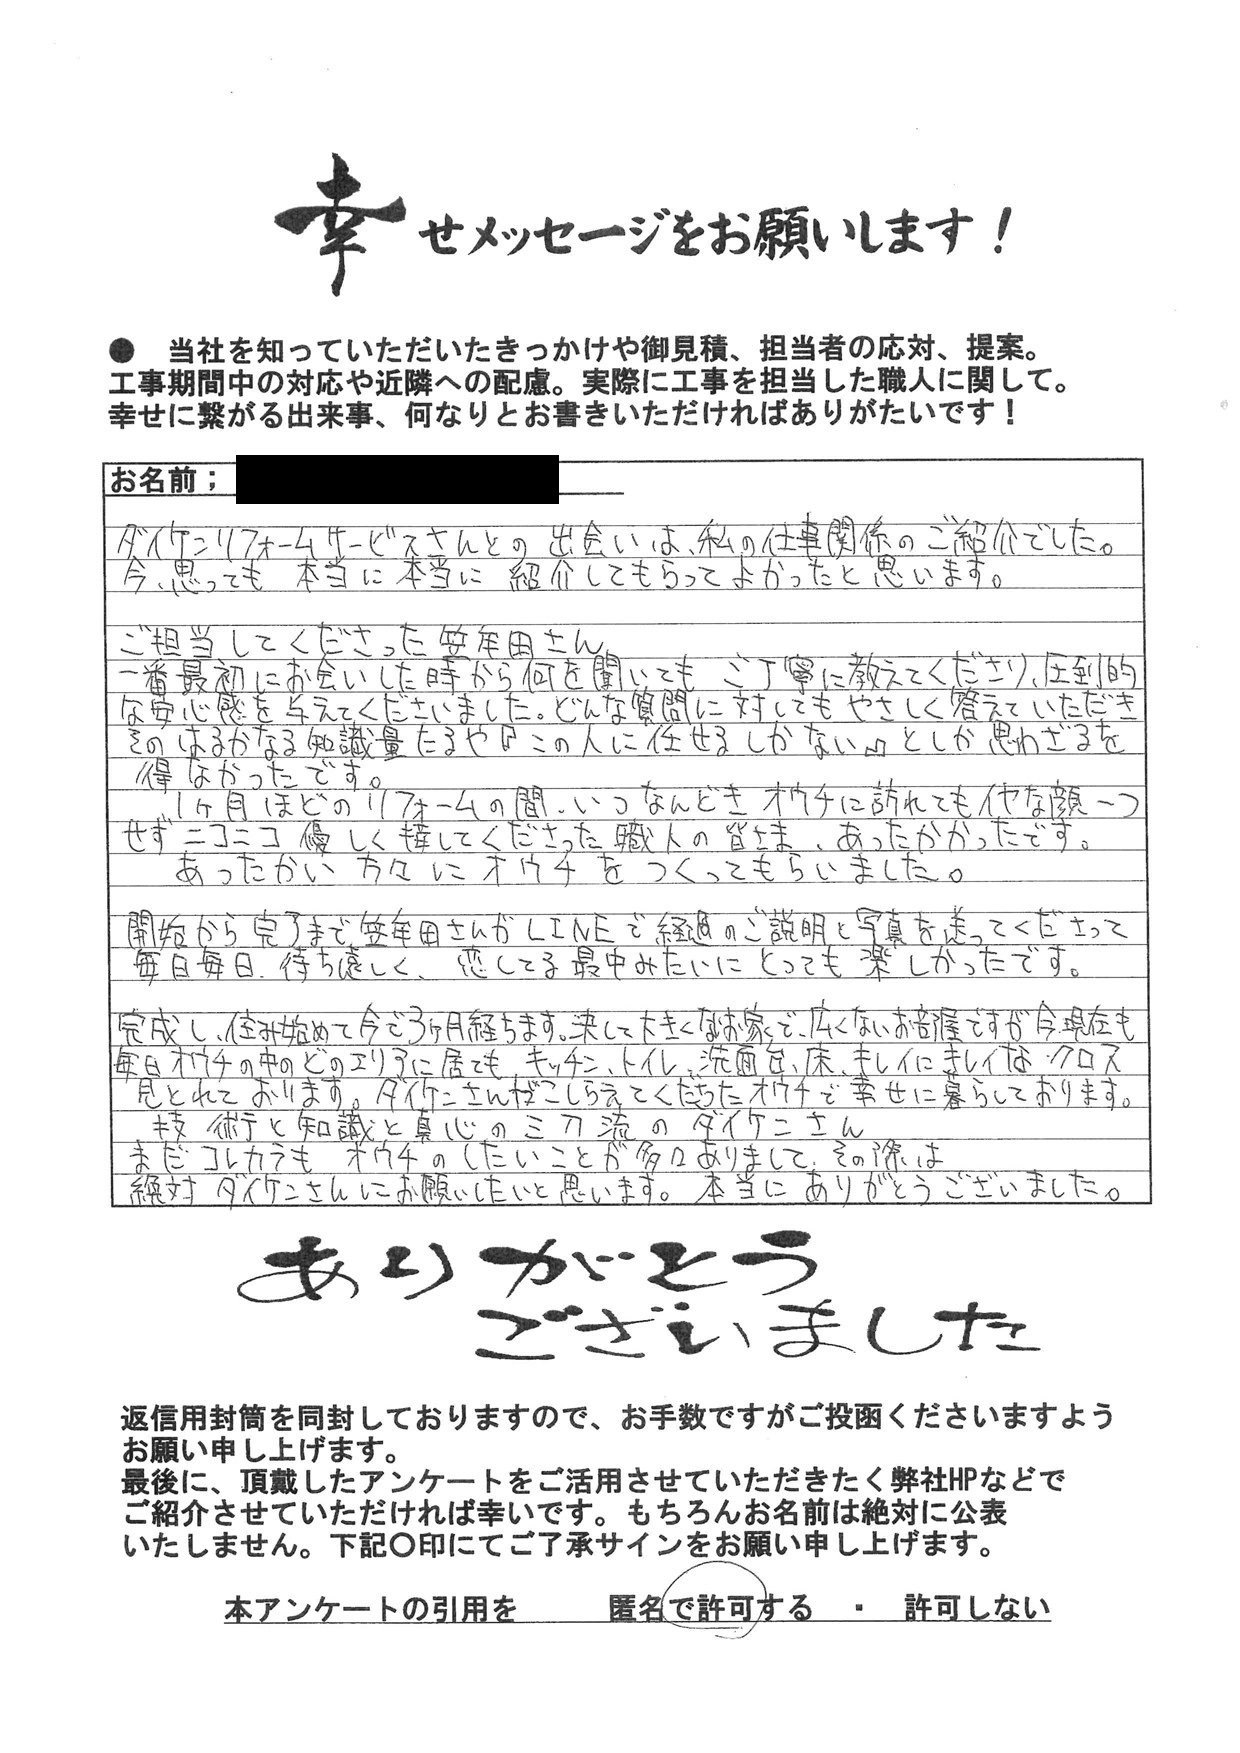 幸せメッセージをお願いします！
●　当社を知っていただいたきっかけや御見積、担当者の応対、提案。
工事期間中の対応や近隣への配慮。実際に工事を担当した職人に関して。
幸せに繋がる出来事、何なりとお書きいただければありがたいです！
お名前；
ダイケンリフォームサービスさんとの 出会いは、私の仕事関係のご紹介でした。
今、思っても 本当に本当に 紹介してもらってよかったと思います。
ご担当してくださった笠牟田さん
一番最初にお会いした時から何を聞いても ご丁寧に教えてくださり、圧倒的
な安心感を与えてくださいました。どんな質問に対してもやさしく答えていただき
そのはるかなる知識量たるや『この人に任せるしかない』としか思わざるを
得なかったです。
1ヶ月ほどのリフォームの間、いつなんどきオウチに訪れてもイヤな顔一つ
せずニコニコ優しく接してくださった職人の皆さま、あったかかったです。
あったかい方々にオウチをつくってもらいました。
開始から完了まで、笠牟田さんがLINEで経過のご説明と写真を送ってくださって
毎日毎日、待ち遠しく、恋してる最中みたいにとっても楽しかったです。
完成し、住み始めて今で3ヶ月経ちます。決して大きくなお家で、広くないお部屋ですが今現在も
毎日オウチの中のどのエリアに居ても、キッチン、トイレ、洗面台、床、キレイにキレイなクロス
見とれております。ダイケンさんがこしらえてくださったオウチで幸せに暮らしております。
技術と知識と真心の三刀流のダイケンさん
まだコレカラも オウチのしたいことが多々ありまして、その際は
絶対 ダイケンさんにお願いしたいと思います。本当にありがとうございました。
ありがとう
ございました
返信用封筒を同封しておりますので、お手数ですがご投函くださいますよう
お願い申し上げます。
最後に、頂戴したアンケートをご活用させていただきたく弊社HPなどで
ご紹介させていただければ幸いです。もちろんお名前は絶対に公表
いたしません。下記〇印にてご了承サインをお願い申し上げます。
本アンケートの引用を　　匿名で許可する　・　許可しない